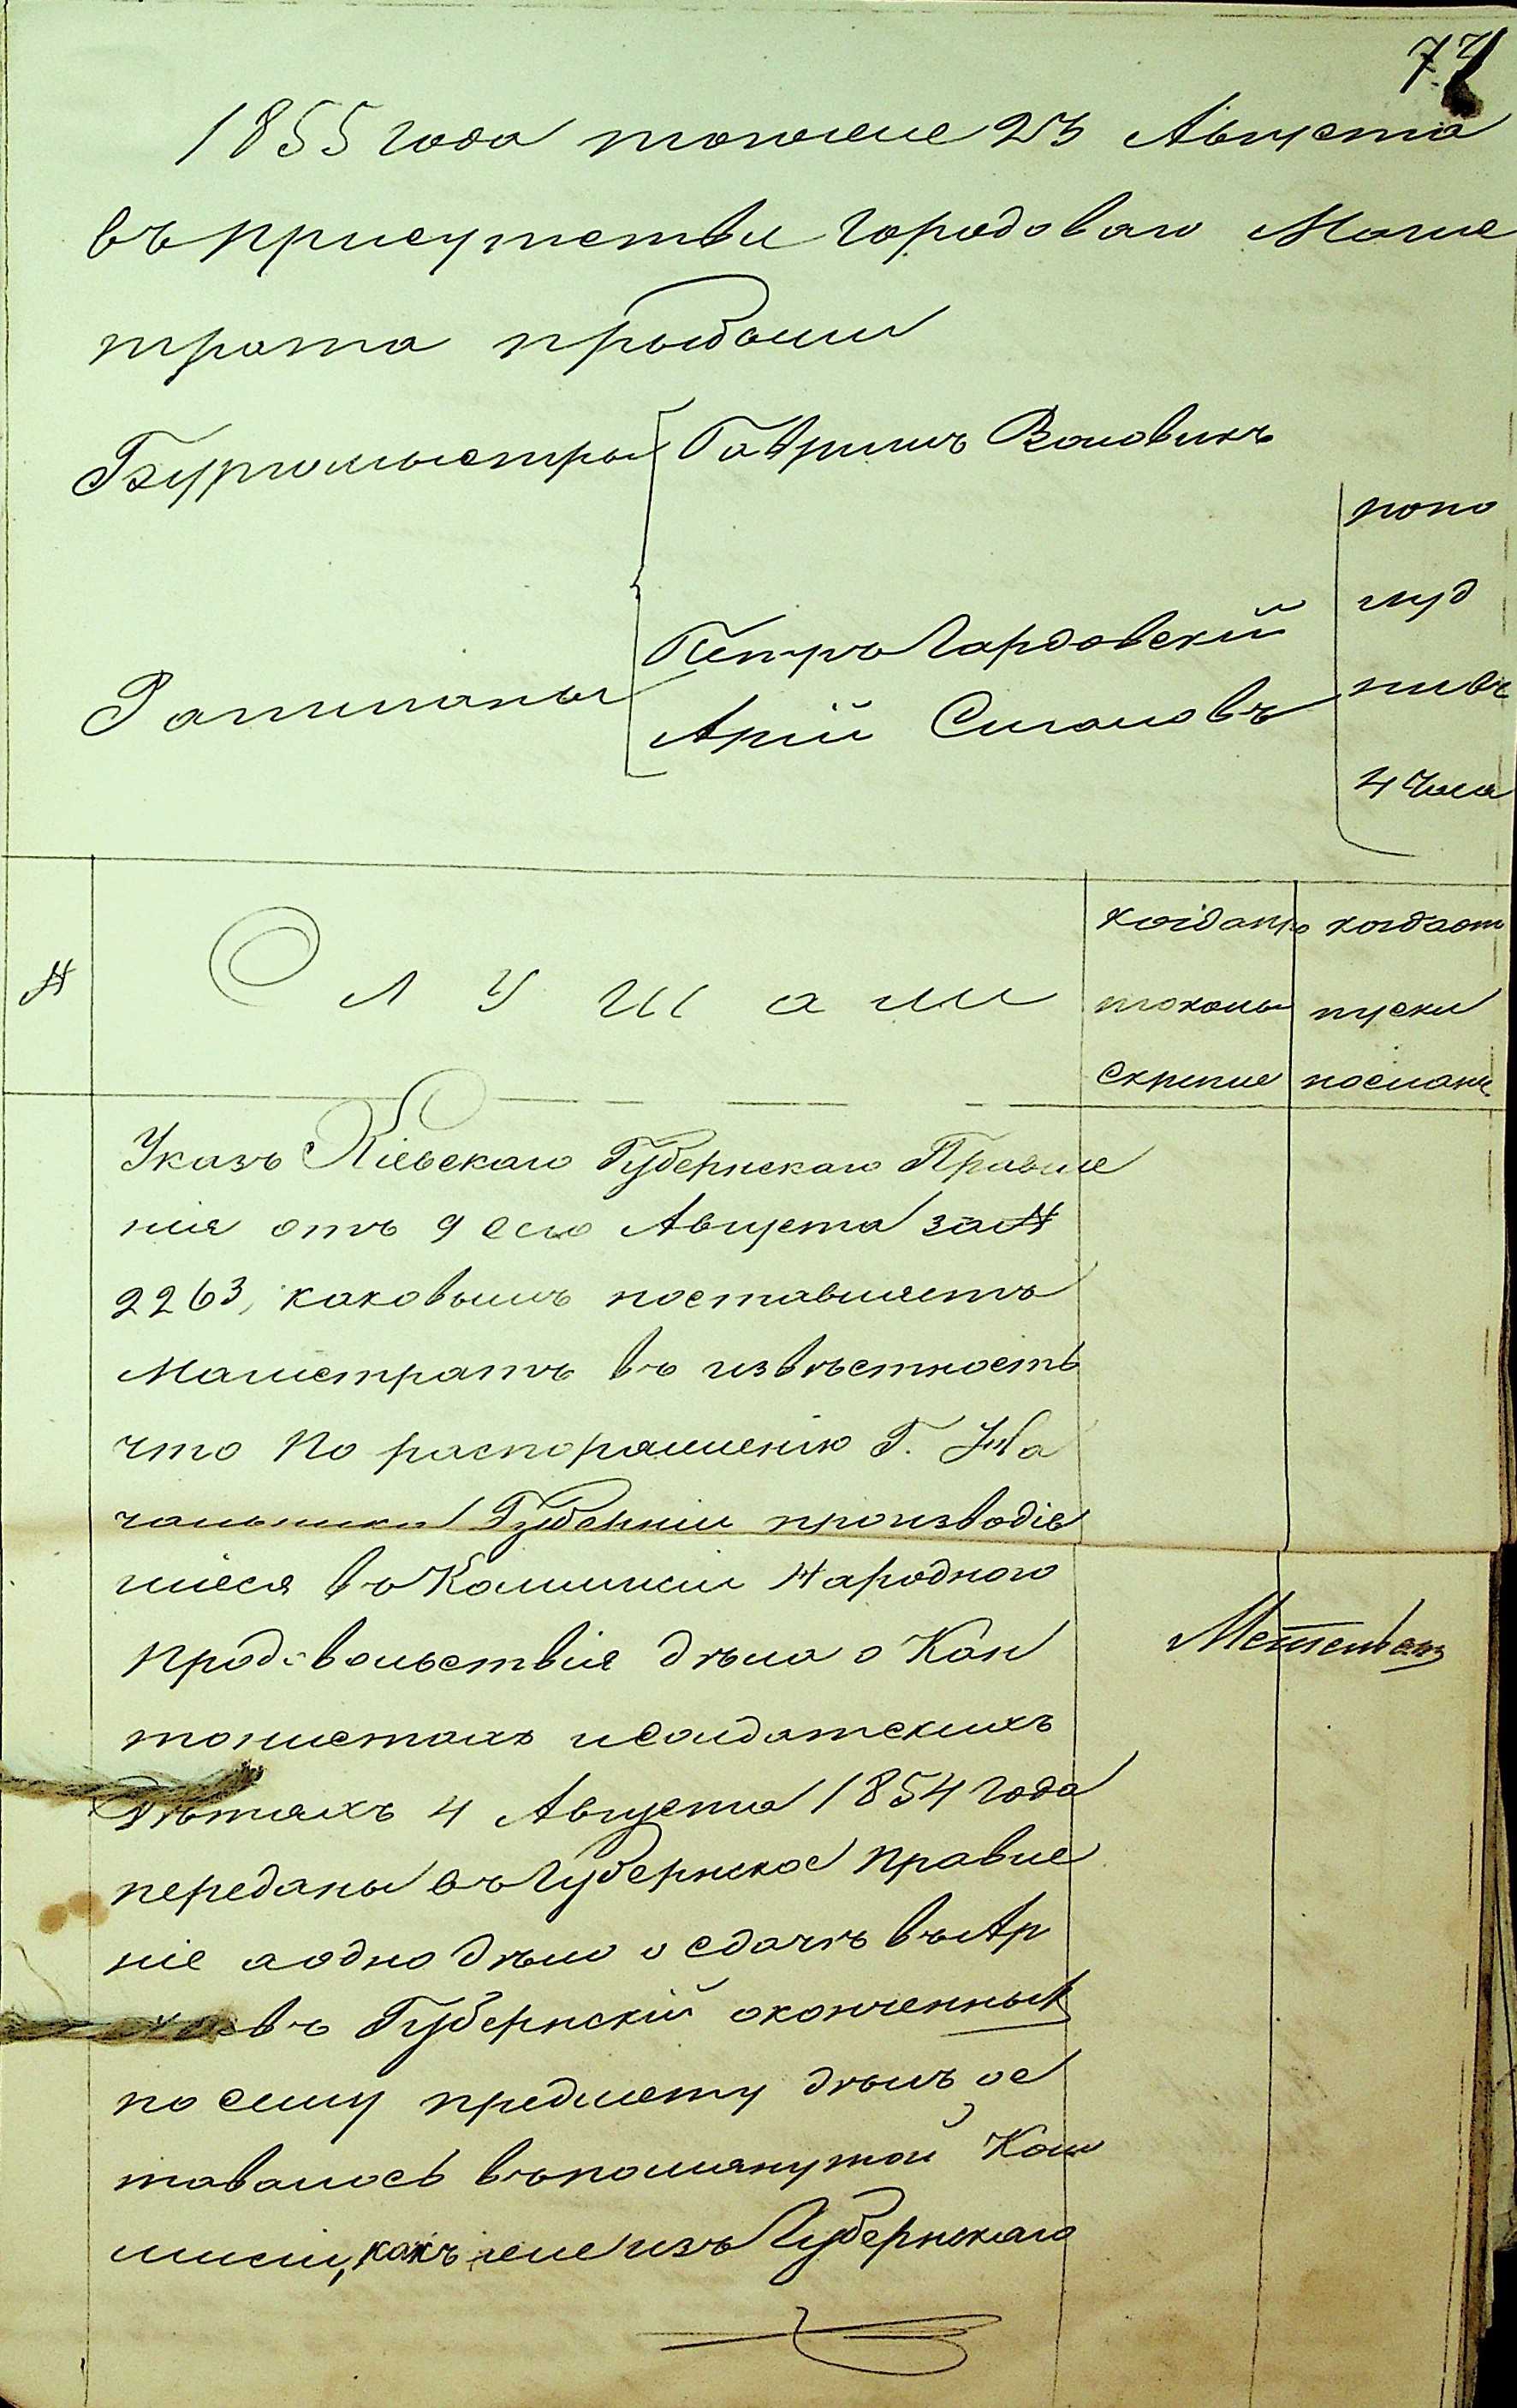 77
1855 года тогоже 23 Августа
въ присутствіи Городоваго Магис
трата прибыли
Бургомыстры Гаврилъ Воловикъ
попо
луд
Петръ Гардовскій
Ратманы
нивъ
Арій Сигаловъ
4 Часа
№
Слушали
когда про когда от
токолы пуски
скрепле посланы
Указъ Кіевскаго Губернскаго Правле
нія отъ 9 сего Августа за №
2263, каковымъ поставляетъ
Магистратъ въ извѣстность
что по распоряженію Г. На
чальника Губерніи производів
шіеся въ Коммисіи Народного
продовольствія дѣла о Кан
тонистахъ и Солдатскихъ
Дѣтяхъ 4 Августа 1854 года
переданы въ Губернское Правле
ніе а одно дѣло о сдачѣ въ Ар
хивъ Губернскій оконченныхъ
по сему предмету дѣлъ ос
тавалось въ помянутой Ком
мисіи, какъ же изъ Губернскаго